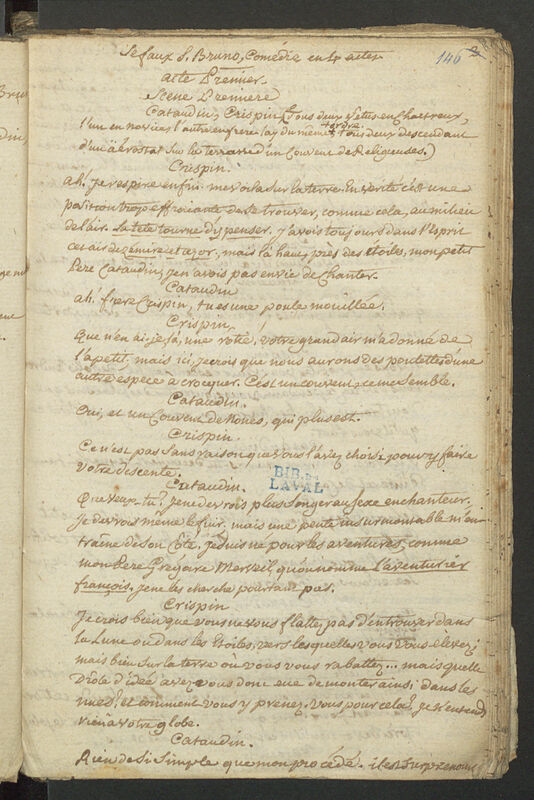 146
Le faux S. Bruno, Comédie en 4 actes
acte Premier.
Scene Premiere
Cataudin, Crispin (tous deux vetus en Chartreux,
l'un en novices l'autre en frere lay du même ordre, tous deux descendant
d'un aérostat sur la terrasse d'un Couvent de Religieuses.)
Crispin.
ah! je respire enfin. me voila sur la terre. En verité c'est une
position trop effraiante de se trouver, comme cela, au milieu
de l'air. La tête tourne d'y penser. j'avois toujours dans l'esprit
cet air de zémire et azor, mais la haut, près des étoiles, mon petit
Pere Cataudin, j'en avois pas envie de Chanter.
Cataudin
ah! frere Crispin, tu es une poule mouillée.
Crispin
Que n'en ai-je là, une rotie, votre grand air m'a donné de
l'apetit; mais ici, je crois que nous aurons des poulettes d'une
autre espèce à crocquer. C'est un couvent, ce me semble.
Cataudin.
Oui, et un Couvent de Nones, qui plus est.
Crispin.
Ce n'est pas sans raison que vous l'avez choisi pour y faire
votre descente.
BIB. DE
LAVAL
Cataudin.
Que veux-tu? je ne devrois plus songer au sexe enchanteur.
je devrois même le fuir, mais une pente insurmontable m'en-
traine de son Côté, je suis né pour les aventures, comme
mon Pere Grégoire Merveil, qu'on nomme l'aventurier
françois, je ne les cherche pourtant pas.
Crispin
Je crois bien que vous ne vous flattez pas d'en trouver dans
la Lune ou dans les étoiles, vers lesquelles vous vous élevez;
mais bien sur la terre où vous vous rabattez... mais quelle
Drole d'idée avez vous donc eue de monter ainsi dans les
nues? et comment vous y prenez-vous pour cela? je n'entends
rien à votre globe.
Cataudin.
Rien de si simple que mon procédé. il est surprenant